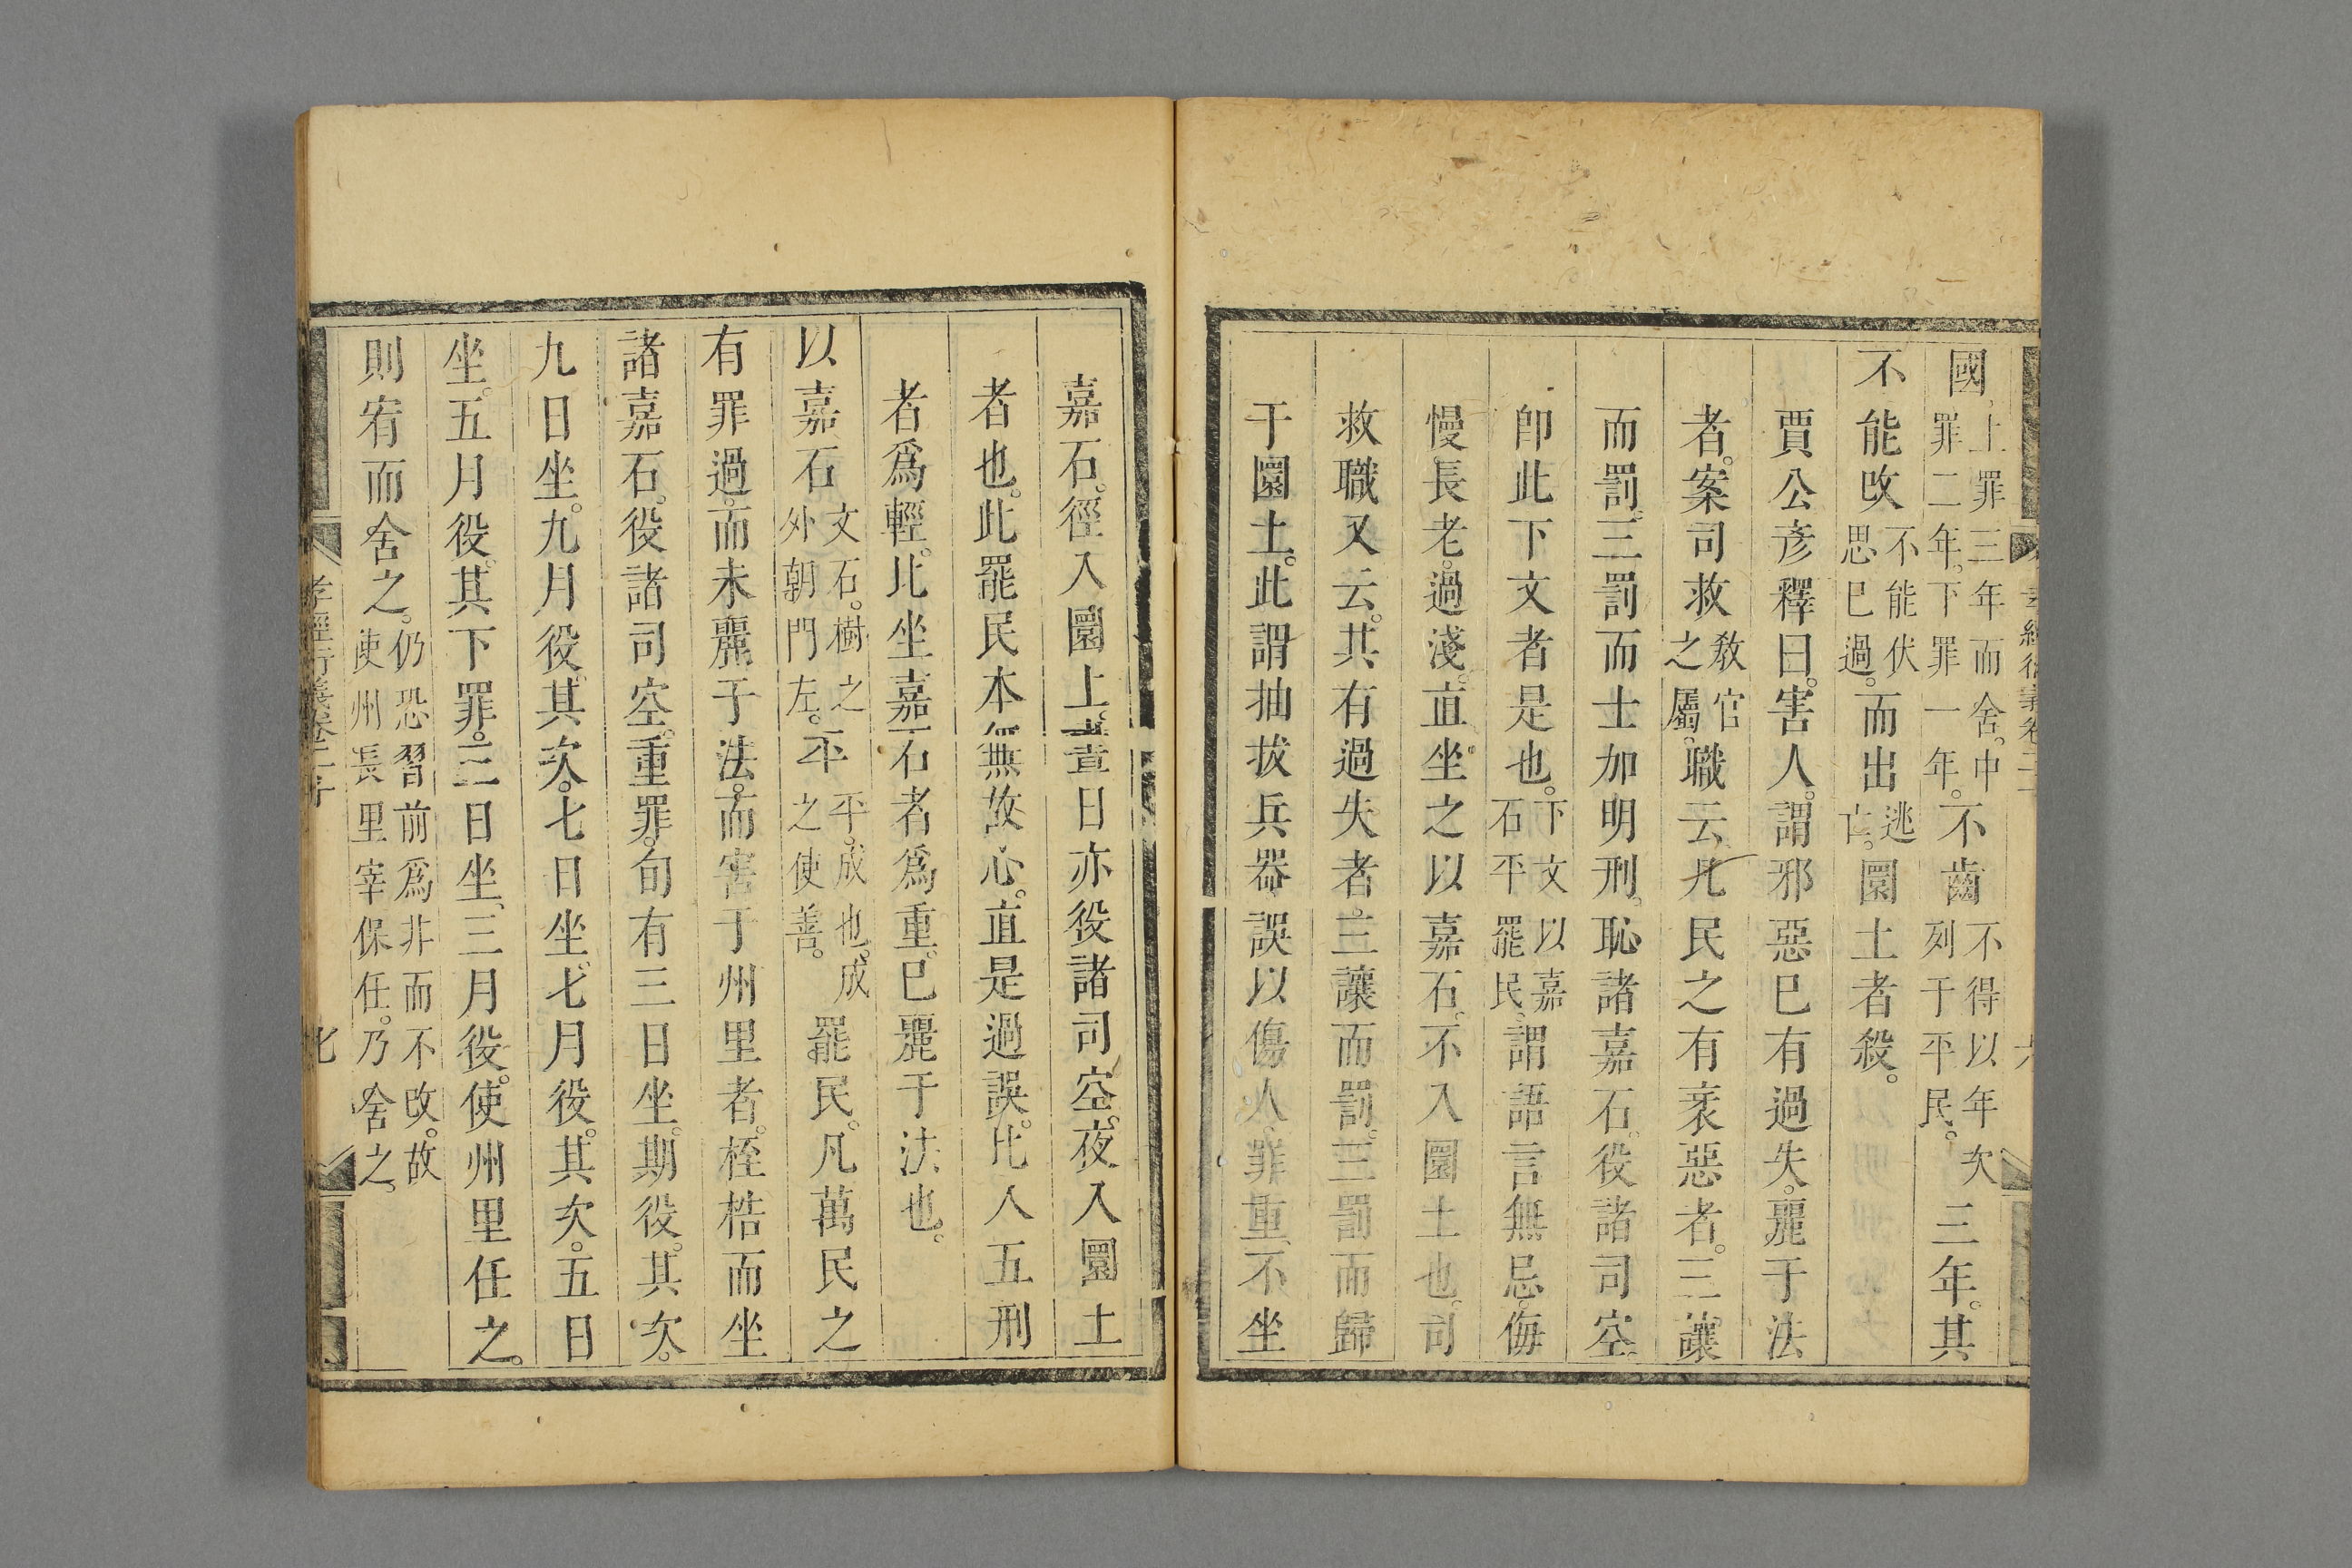 國上罪三年而舍。中罪二年。下罪一年。不齒不得以年次列于平民。三年。其
不能改不能伏思已過。而出逃亡。圜土者殺。
賈公彥釋曰。害人。謂邪惡已有過失。麗于法
者。案司救敎官之屬。職云。凡民之有衺惡者。三讓
而罰。三罰而士加明刑。恥諸嘉石。役諸司空。
卽此下文者是也。下文以嘉石平罷民。謂語言無忌。侮
慢長老。過淺。直坐之以嘉石。不入圜土也。司
救職又云。其有過失者。三讓而罰。三罰而歸
于圜土。此謂抽拔兵器。誤以傷人。罪重。不坐
嘉石。徑入圜土。晝日亦役諸司空。夜入圜土
者也。此罷民本無故心。直是過誤。比入五刑
者爲輕。比坐嘉石者爲重。已麗于法也。
以嘉石文石。樹之外朝門左。平平。成也。成之使善。罷民。凡萬民之
有罪過。而未麗于法。而害于州里者。桎梏而坐
諸嘉石。役諸司空。重罪。旬有三日坐。期役。其次。
九日坐。九月役。其次。七日坐。七月役。其次。五日
坐。五月役。其下罪。三日坐、三月役。使州里任之。
則宥而舍之。仍恐習前爲非而不改。故使州長里宰保任。乃舍之。
孝經衍義卷二十
七